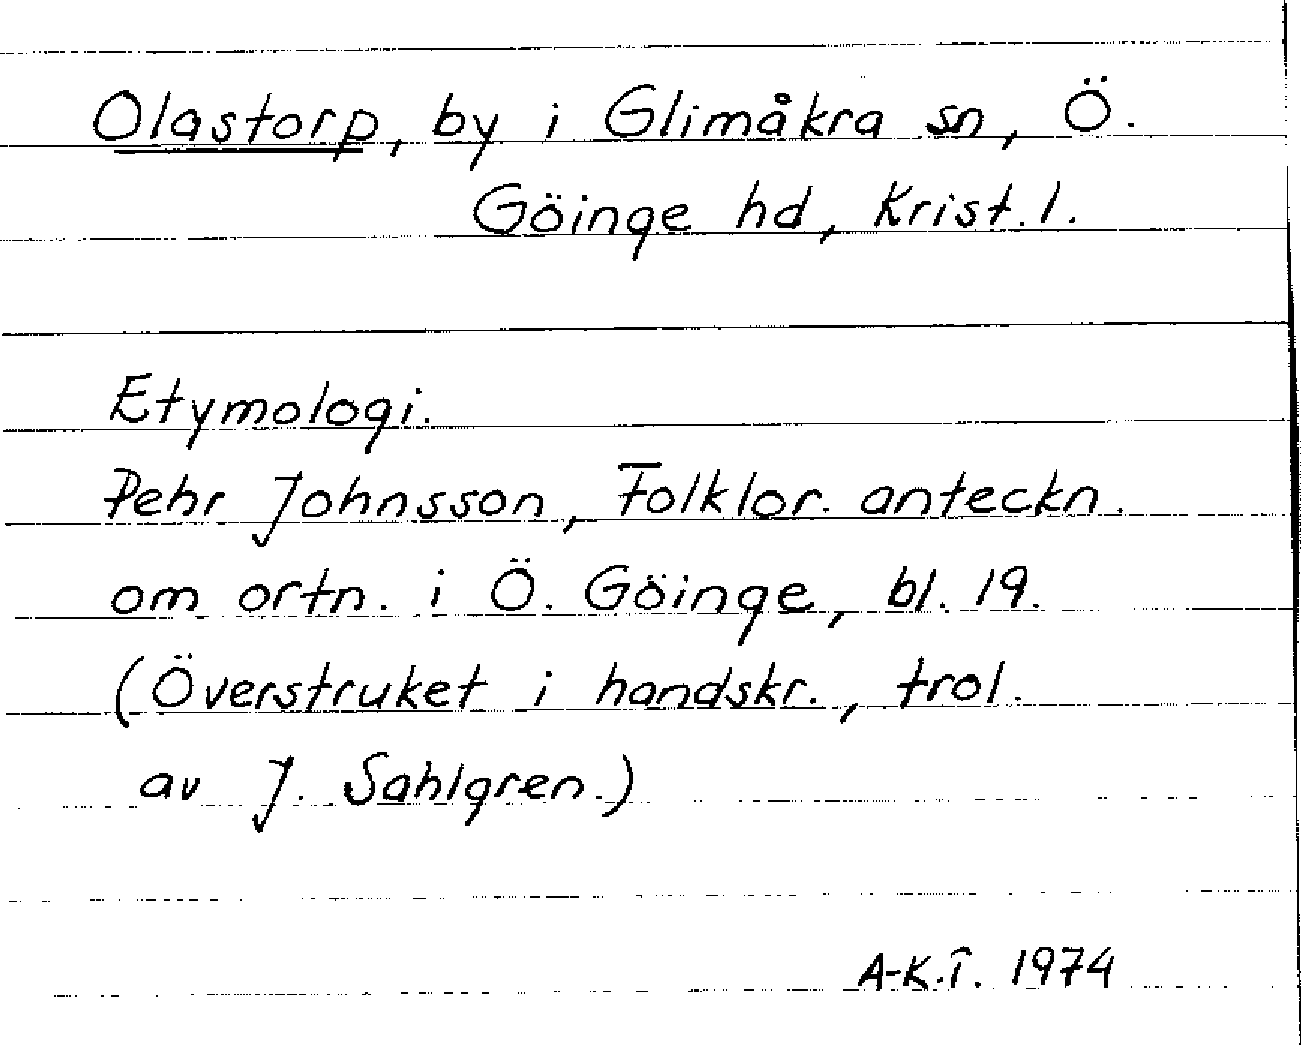 Olastorp, by i Glimåkra sn, Ö.
Göinge hd, Krist. l.
Etymologi.
Pehr Johnsson, Folklor. anteckn.
om ortn. i Ö. Göinge, bl. 19.
(Överstruket i handskr., trol.
av J. Sahlgren.)
A-K.T. 1974